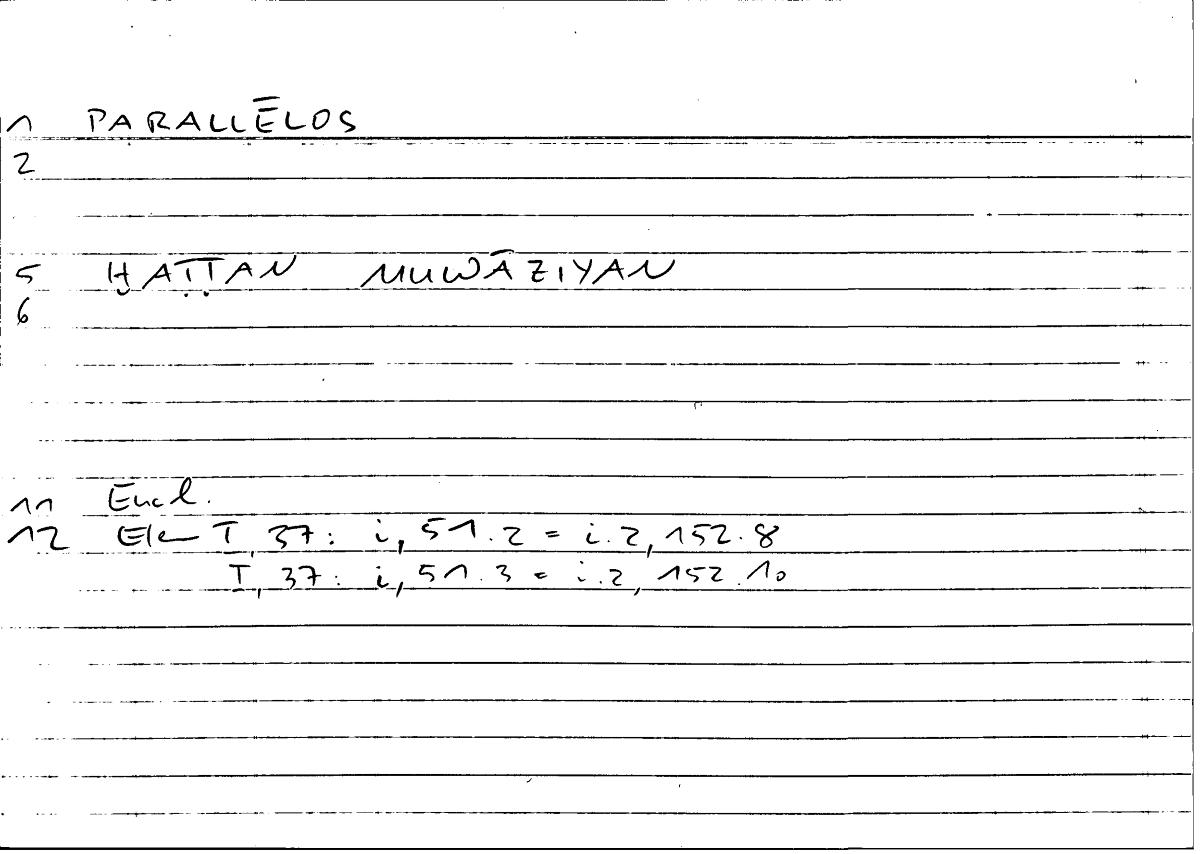 1 PARALLĒLOS
2
5 ḪAṬṬAN MUWĀZIYAN
6
11 Eucl.
12 Elem I, 37: i, 51.2 = i.2, 152.8
I, 37: i, 51.3 = i.2, 152.10